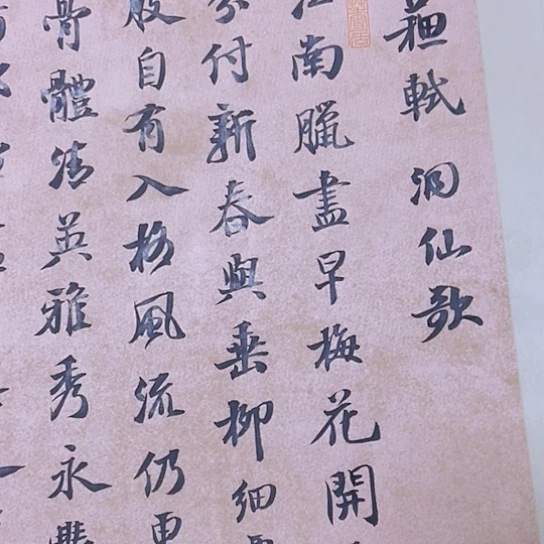 蘇軾洞仙歌
江南臘盡早梅花開
分付新春與垂柳細
般自有入格風流仍更
骨體清英雅秀永豐